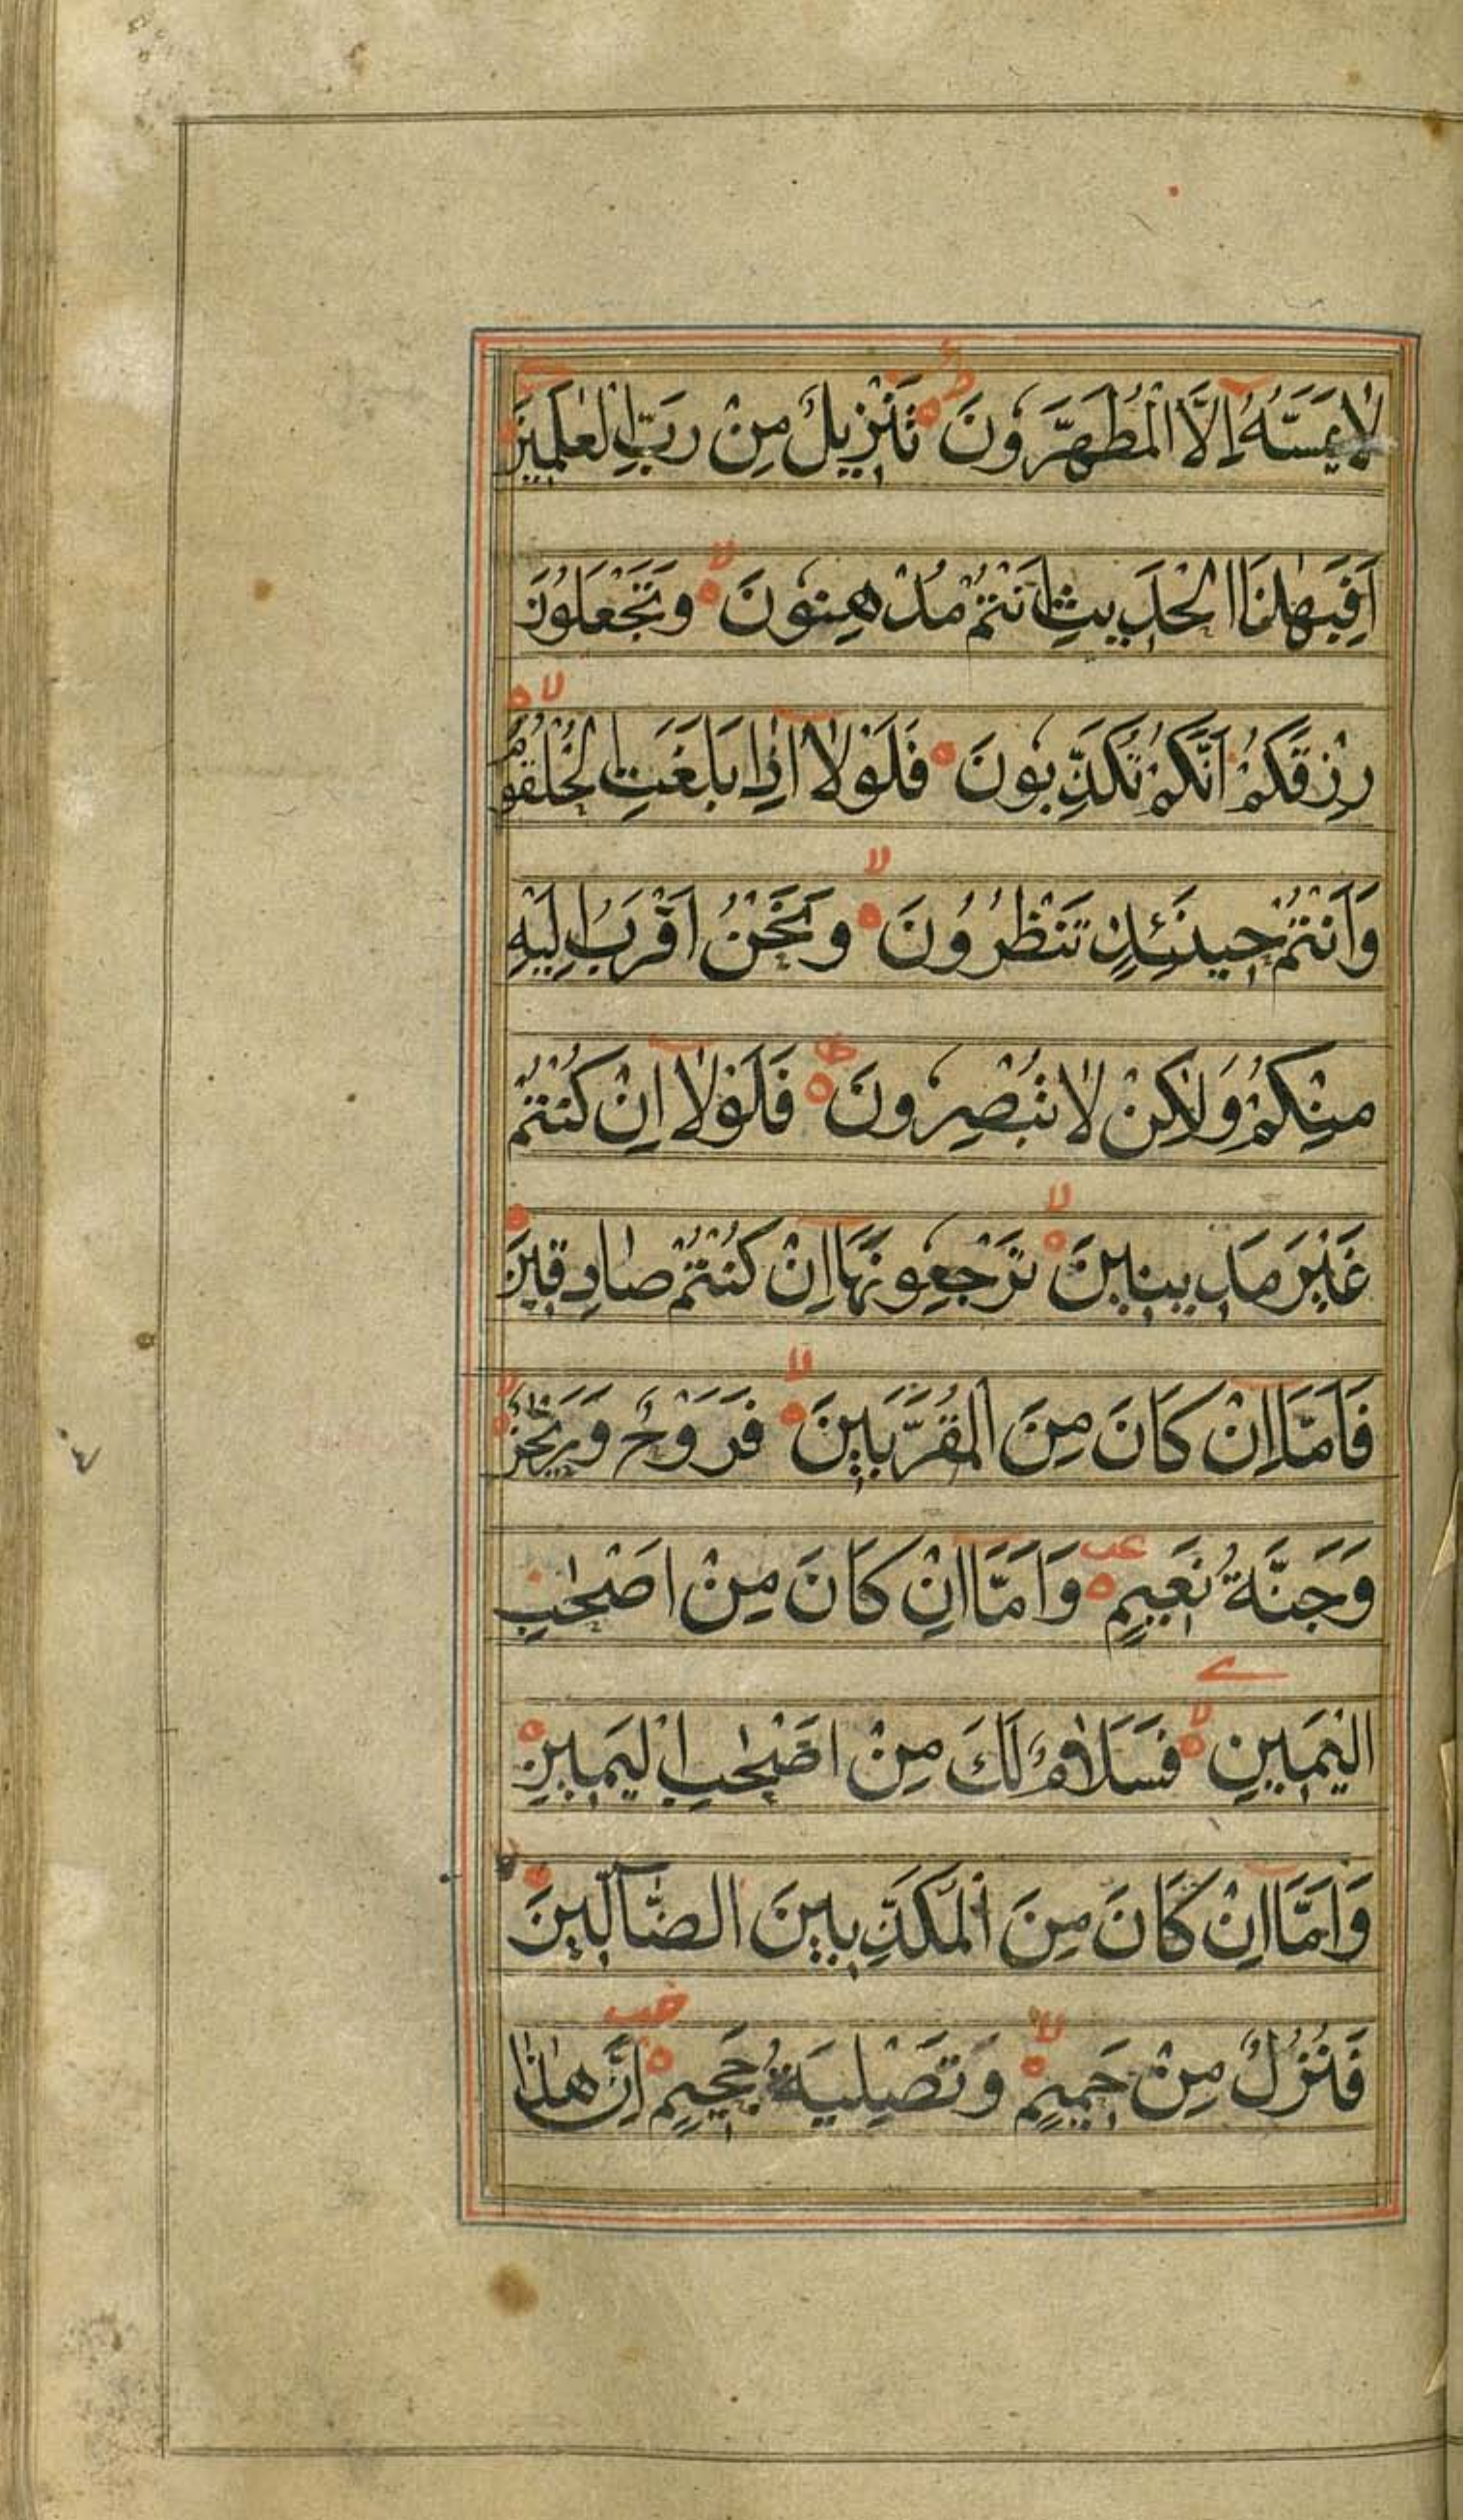 لَا يَمَسُّهُ اِلَّا الْمُطَهَّرُونَ تَنْزِيلٌ مِنْ رَبِّ الْعٰلَمِينَ
اَفَبِهٰذَا الْحَدِيثِ اَنْتُمْ مُدْهِنُونَ وَتَجْعَلُونَ
رِزْقَكُمْ اَنَّكُمْ تُكَذِّبُونَ فَلَوْلَا اِذَا بَلَغَتِ الْحُلْقُومَ
وَاَنْتُمْ حِينَئِذٍ تَنْظُرُونَ وَنَحْنُ اَقْرَبُ اِلَيْهِ
مِنْكُمْ وَلٰكِنْ لَا تُبْصِرُونَ فَلَوْلَا اِنْ كُنْتُمْ
غَيْرَ مَدِينِينَ تَرْجِعُونَهَا اِنْ كُنْتُمْ صَادِقِينَ
فَاَمَّا اِنْ كَانَ مِنَ الْمُقَرَّبِينَ فَرَوْحٌ وَرَيْحَانٌ
وَجَنَّةُ نَعِيمٍ وَاَمَّا اِنْ كَانَ مِنْ اَصْحٰبِ
الْيَمِينِ فَسَلَامٌ لَكَ مِنْ اَصْحٰبِ الْيَمِينِ
وَاَمَّا اِنْ كَانَ مِنَ الْمُكَذِّبِينَ الضَّآلِّينَ
فَنُزُلٌ مِنْ حَمِيمٍ وَتَصْلِيَةُ جَحِيمٍ اِنَّ هٰذَا